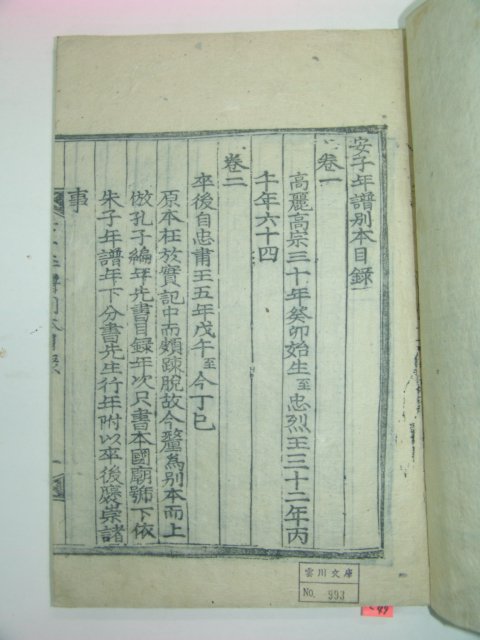 安子年譜別本目録
卷一
高麗高宗三十年癸卯始生至忠烈王三十二年丙
午年六十四
卷二
卒後自忠肅王五年戊午至今丁巳
原本在於實記中而頗疎脫故今釐爲別本而上
倣孔子編年先書目録年次只書本國廟號下依
朱子年譜年下分書先生行年附以卒後褒崇諸
事
雲川文庫
No. 993